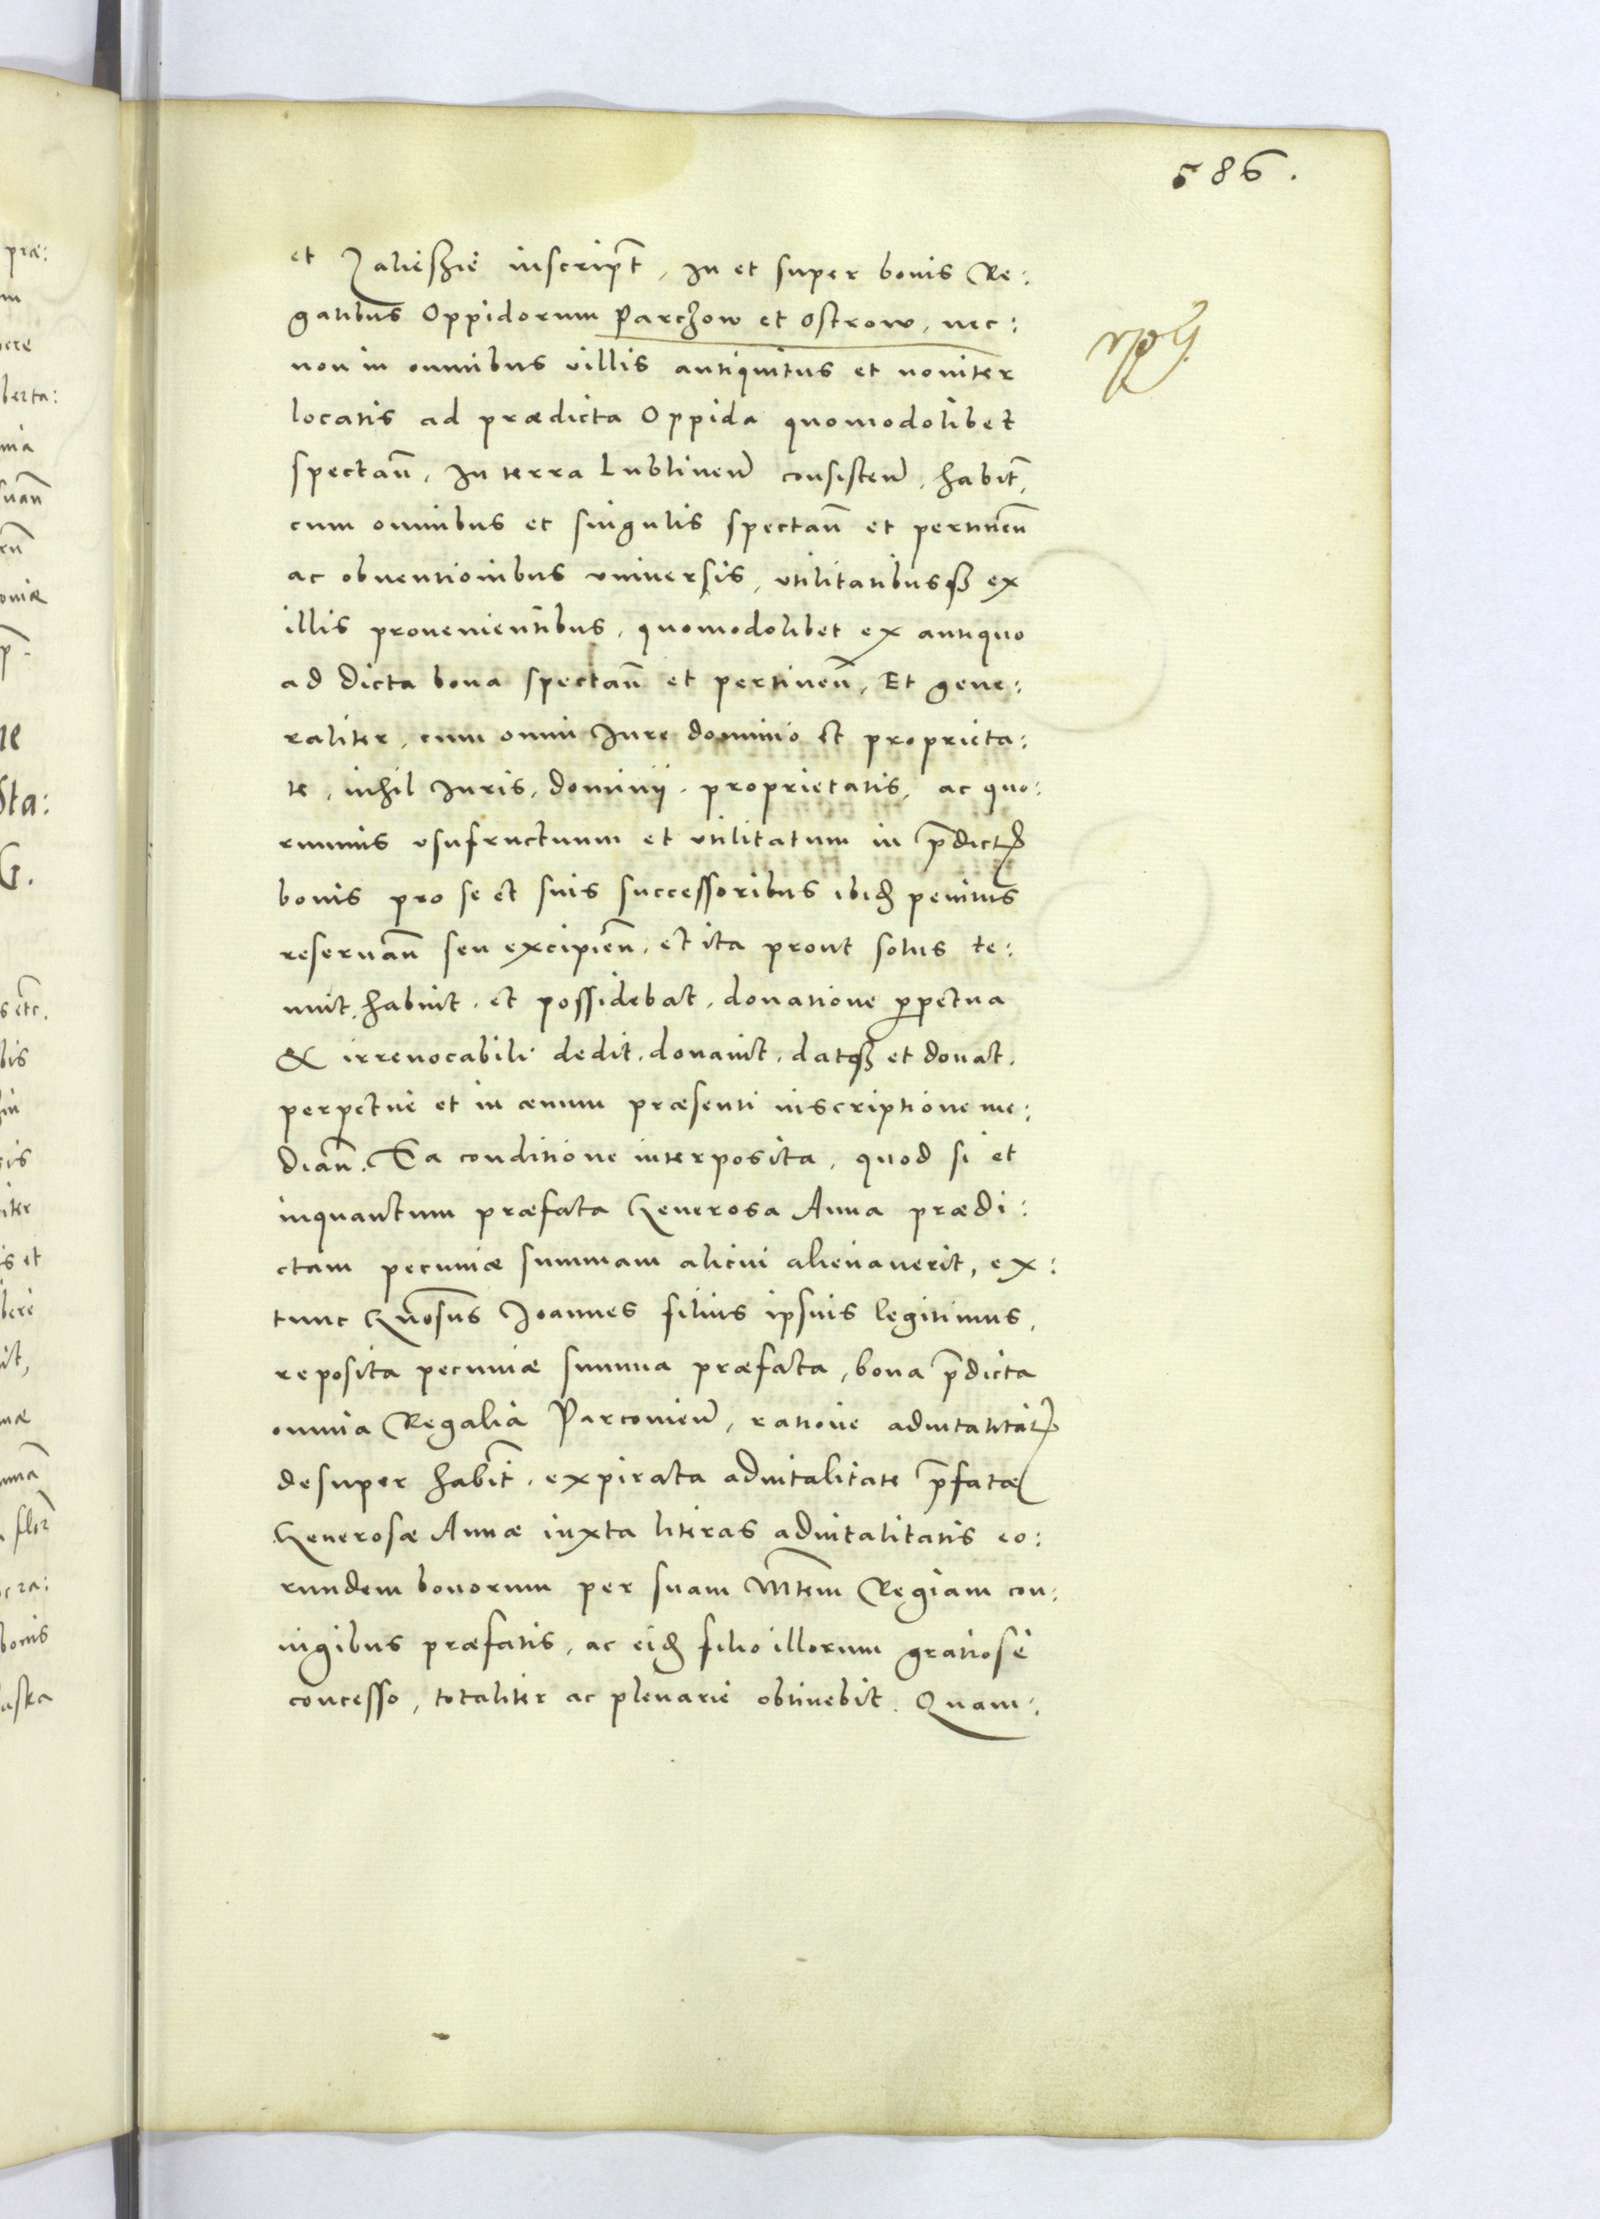 586.
et Zalieszie inscript̄, In et super bonis Re:
galibus Oppidorum Parczow et Ostrow, nec:
non in omnibus villis antiquitus et noviter
locatis ad prædicta Oppida quomodolibet
spectan̄, In terra Lublinen̄ consisten̄, habit̄,
cum omnibus et singulis spectan̄ et pertinen̄
ac obventionibus vniversis, vtilitatibusqꝫ ex
illis provenientibus, quomodolibet ex antiquo
ad dicta bona spectan̄ et pertinen̄, Et gene:
raliter, cum omni Iure dominio et proprieta:
te, nihil Iuris, dominij, proprietatis, ac quo:
rumvis vsufructuum et vtilitatum in p̄dictꝭ
bonis pro se et suis successoribus ibid̄ penitus
reservan̄ seu excipien̄, et ita prout solus te:
nuit, habuit, et possidebat, donatione ꝑpetua
& irrevocabili dedit, donavit, datqꝫ et donat,
perpetue et in ævum præsenti inscriptione me:
dian̄. Ea conditione interposita, quod si et
inquantum præfata Generosa Anna prædi:
ctam pecuniæ summam alicui alienaverit, ex:
tunc Gn̄osus Joannes filius ipsius legitimus,
reposita pecuniæ summa præfata, bona p̄dicta
omnia Regalia Parcovien̄, ratione advitalitatꝭ
desuper habit̄, expirata advitalitate p̄fatæ
Generosæ Annæ iuxta literas advitalitatis eo:
rundem bonorum per suam M̄tem Regiam con:
iugibus præfatis, ac eid̄ filio illorum gratiose
concesso, totaliter ac plenarie obtinebit. Quam: